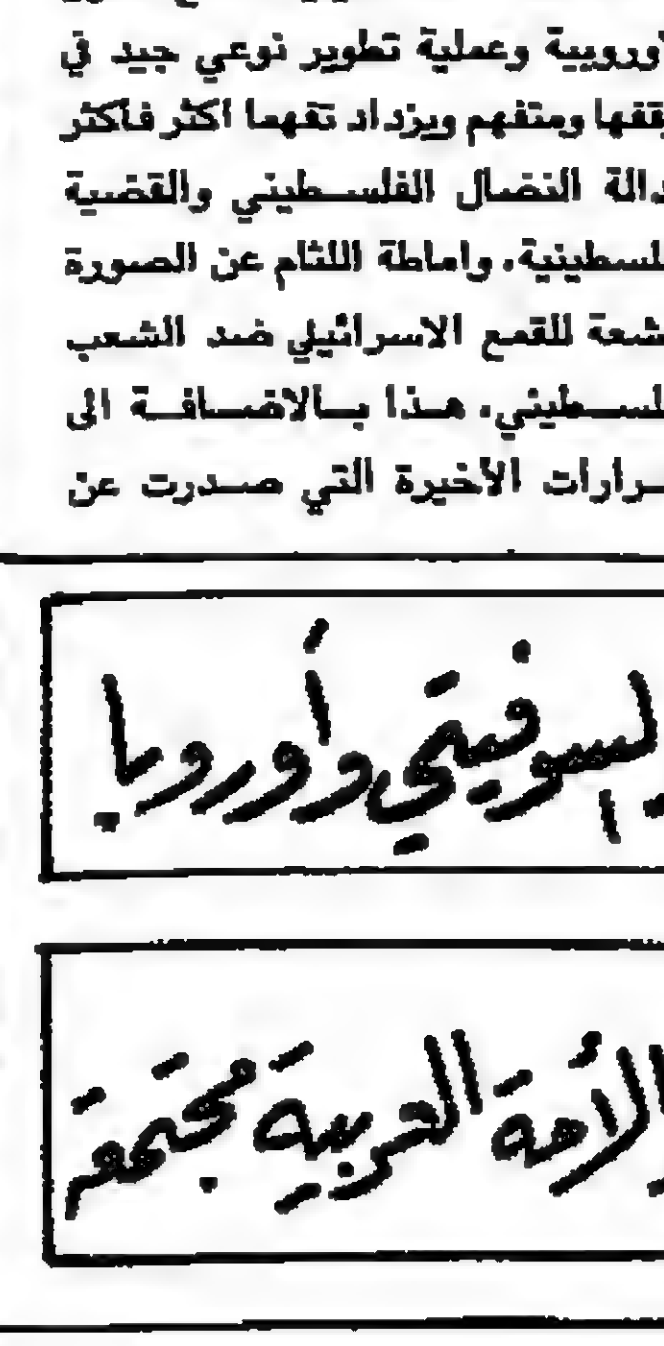 اوروبية وعملية تطوير نوعي جيد في
قفها ومتفهم ويزداد تفهما اكثر فاكثر
دالة النضال الفلسطيني والقضية
لسطينية، واماطة اللثام عن الصورة
شعة للقمع الاسرائيلي ضد الشعب
لسطيني، هذا بالاضافة الى
رارات الأخيرة التي صدرت عن
السوفيتي وأوروبا
الأمة العربية مجتمعة